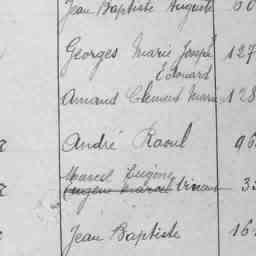 Jean Baptiste Auguste 60
Georges Marie Joseph 127
Edouard
Amand Clement Marie 128
André Raoul 96
Marcel Eugène
Eugène Marcel 33
Jean Baptiste 161